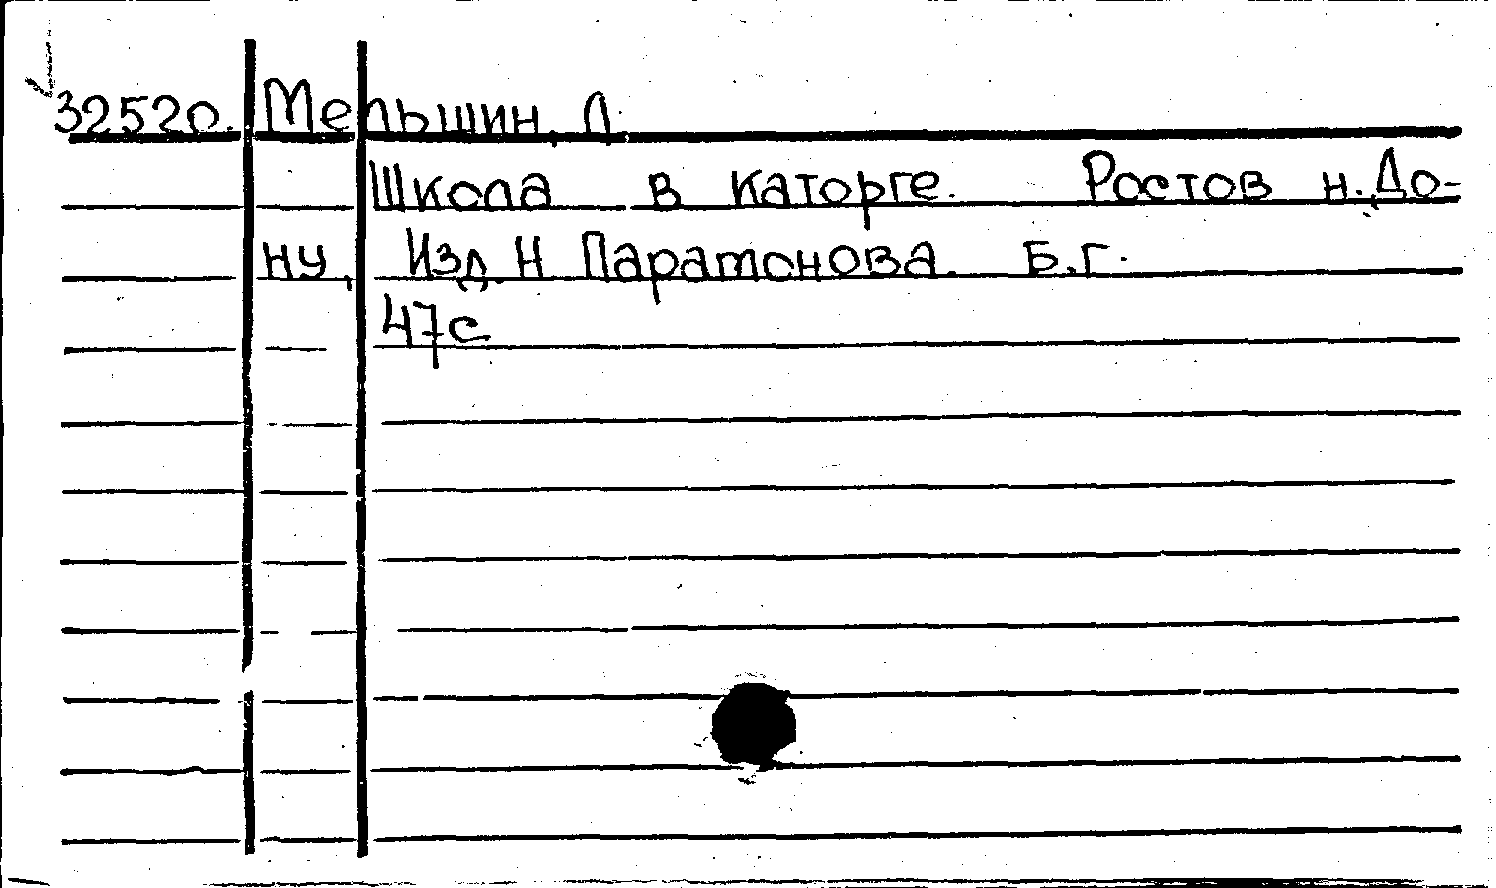 32520. Мельшин, Л.
Школа в каторге. Ростов н. До-
ну, Изд. Н Парамонова. Б.г.
47с